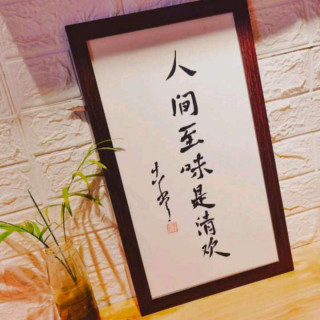 人间至味是清欢